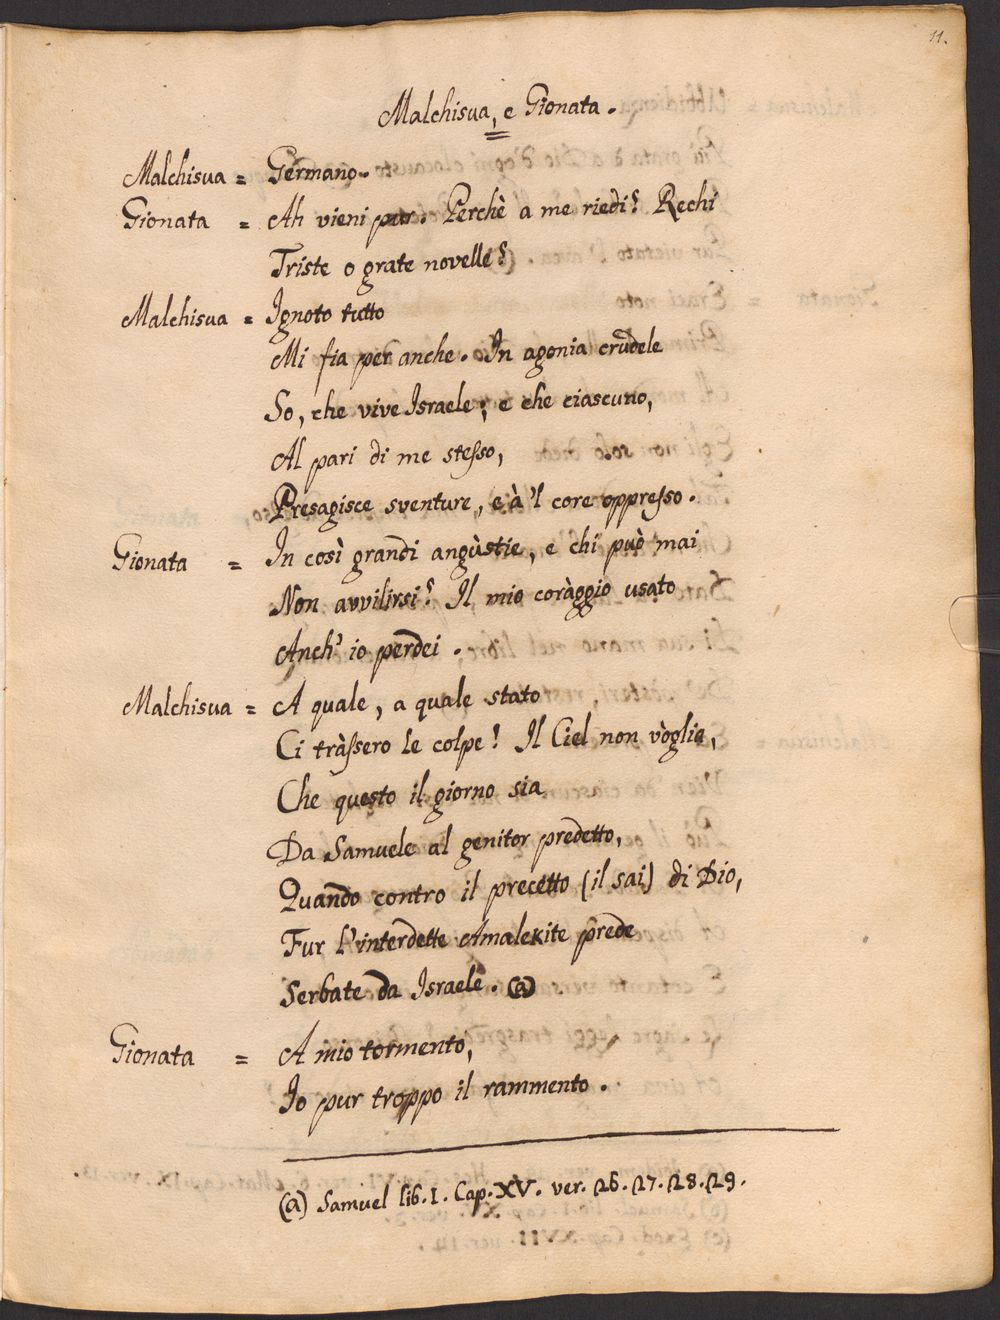 11.
Malchisua, e Gionata.
Malchisua = Germano.
Gionata = Ah vieni pur. Perchè a me riedi? Rechi
Triste o grate novelle?
Malchisua = Ignoto tutto
Mi fia per anche. In agonia crudele
So, che vive Israele; e che ciascuno,
Al pari di me stesso,
Presagisce sventure, e à 'l core oppresso.
Gionata = In così grandi angùstie, e chi può mai
Non avvilirsi? Il mio coràggio usato
Anch' io perdei.
Malchisua = A quale, a quale stato
Ci tràssero le colpe! Il Ciel non vòglia,
Che questo il giorno sia
Da Samuele al genitor predetto,
Quando contro il precetto (il sai) di Dio,
Fur l'interdette Amalekite prede
Serbate da Israele. (a)
Gionata = A mio tormento,
Io pur troppo il rammento.
(a) Samuel lib. I. Cap. XV. ver. 26. 27. 28. 29.